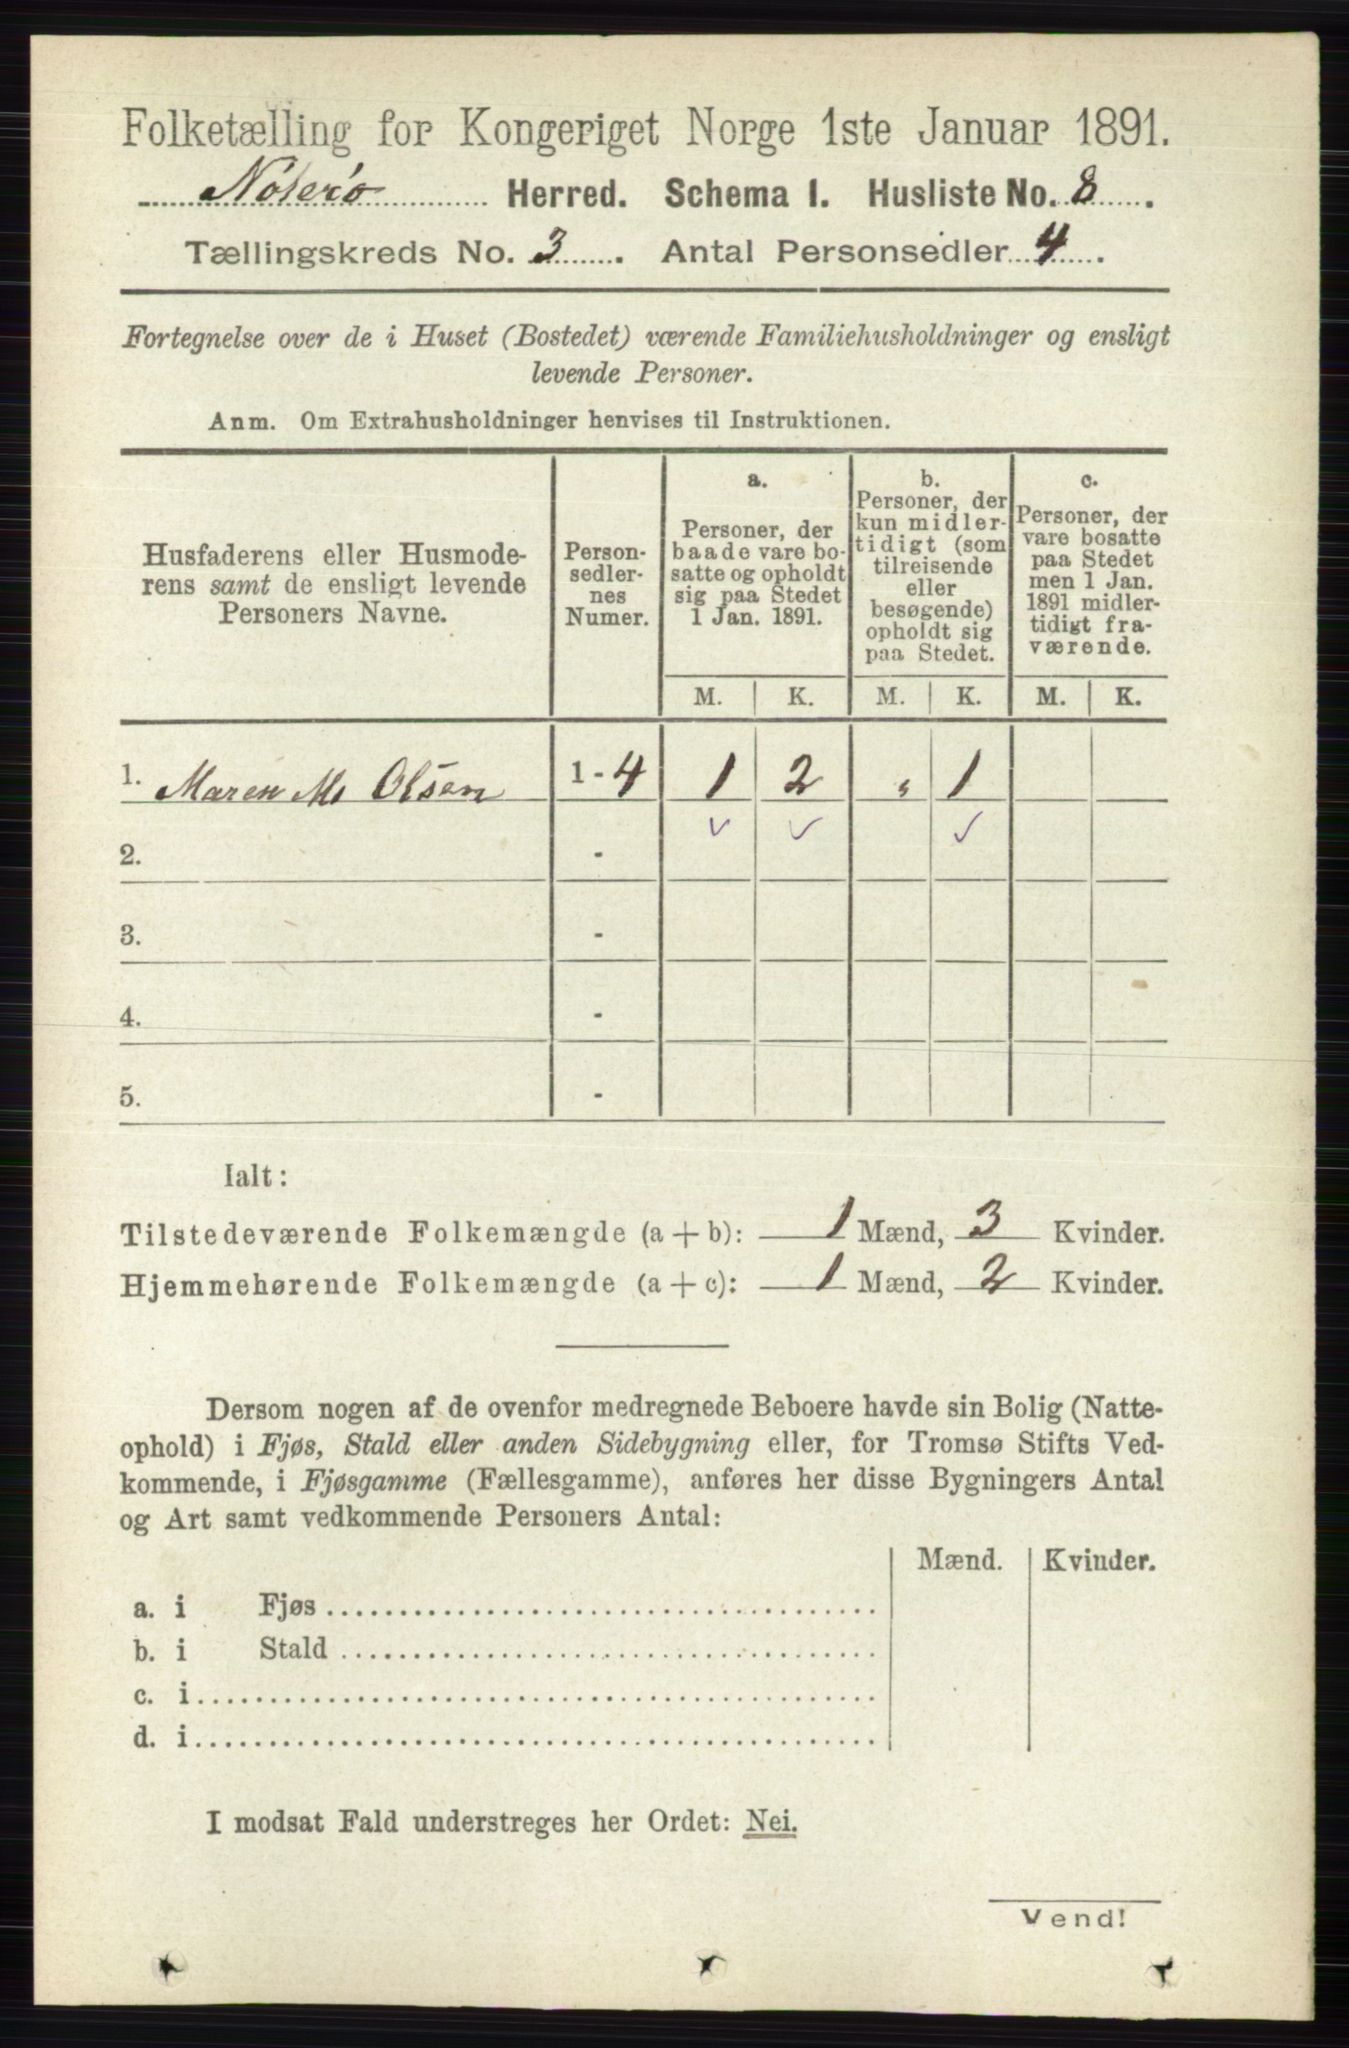 Folketælling for Kongeriget Norge 1ste Januar 1891.
Nøterø Herred. Schema I. Husliste No. 8.
Tællingskreds No. 3. Antal Personsedler 4.
Fortegnelse over de i Huset (Bostedet) værende Familiehusholdninger og ensligt
levende Personer.
Anm. Om Extrahusholdninger henvises til Instruktionen.
Husfaderens eller Husmode-
rens samt de ensligt levende
Personers Navne.
Person-
sedler-
nes
Numer.
a.
Personer, der
baade vare bo-
satte og opholdt
sig paa Stedet
1 Jan. 1891.
b.
Personer, der
kun midler-
tidigt (som
tilreisende
eller
besøgende)
opholdt sig
paa Stedet.
c.
Personer, der
vare bosatte
paa Stedet
men 1 Jan.
1891 midler-
tidigt fra-
værende.
M. K. M. K. M. K.
1. Maren M. Olsen 1 - 4 1 2 „ 1
✓ ✓ ✓
2. -
3. -
4. -
5. -
Ialt:
Tilstedeværende Folkemængde (a + b): 1 Mænd, 3 Kvinder.
Hjemmehørende Folkemængde (a + c): 1 Mænd, 2 Kvinder.
Dersom nogen af de ovenfor medregnede Beboere havde sin Bolig (Natte-
ophold) i Fjøs, Stald eller anden Sidebygning eller, for Tromsø Stifts Ved-
kommende, i Fjøsgamme (Fællesgamme), anføres her disse Bygningers Antal
og Art samt vedkommende Personers Antal:
Mænd. Kvinder.
a. i Fjøs
b. i Stald
c. i
d. i
I modsat Fald understreges her Ordet: Nei.
Vend!